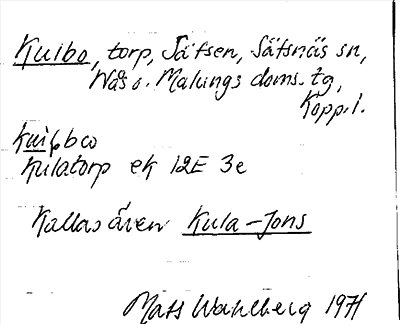 Kulbo, torp, Sätsen, Sätsnäs sn,
Nås o. Malungs doms. tg,
Kopp. l.
Kulatorp ek 12E 3e
Kallas även Kula-Jons
Mats Wahlberg 1971